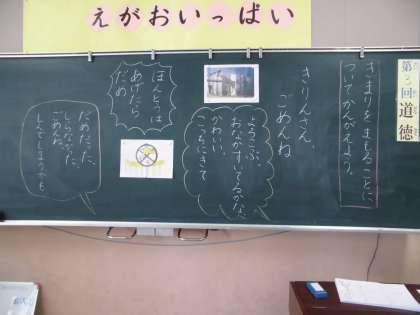 えがおいっぱい
第3回 道徳
きまりを まもることに
ついてかんがえよう。
きりんさん、
ごめんね
よろこぶ。
おなかすいてるかな。
かわいい。
こっちにきて
ほんとうは
あげたら
だめ
だめだった。
しらなかった。
ごめんね。
しんでしまうかも